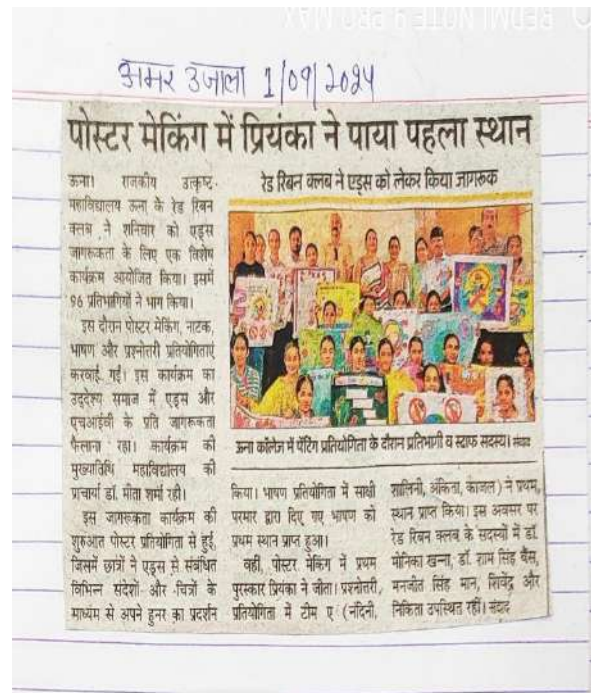 REDMI NOTE 9 PRO MAX
अमर उजाला 1/09/2024
पोस्टर मेकिंग में प्रियंका ने पाया पहला स्थान
रेड रिबन क्लब ने एड्स को लेकर किया जागरूक
ऊना। राजकीय उत्कृष्ट
महाविद्यालय ऊना के रेड रिबन
क्लब ने शनिवार को एड्स
जागरूकता के लिए एक विशेष
कार्यक्रम आयोजित किया। इसमें
96 प्रतिभागियों ने भाग किया।
इस दौरान पोस्टर मेकिंग, नाटक,
भाषण और प्रश्नोतरी प्रतियोगिताएं
करवाई गईं। इस कार्यक्रम का
उद्देश्य समाज में एड्स और
एचआईवी के प्रति जागरूकता
फैलाना रहा। कार्यक्रम की
मुख्यातिथि महाविद्यालय की
प्राचार्या डॉ. मीता शर्मा रही।
इस जागरूकता कार्यक्रम की
शुरुआत पोस्टर प्रतियोगिता से हुई,
जिसमें छात्रों ने एड्स से संबंधित
विभिन्न संदेशों और चित्रों के
माध्यम से अपने हुनर का प्रदर्शन
ऊना कॉलेज में पेंटिंग प्रतियोगिता के दौरान प्रतिभागी व स्टाफ सदस्य। संवाद
किया। भाषण प्रतियोगिता में साक्षी
परमार द्वारा दिए गए भाषण को
प्रथम स्थान प्राप्त हुआ।
वहीं, पोस्टर मेकिंग में प्रथम
पुरस्कार प्रियंका ने जीता। प्रश्नोतरी,
प्रतियोगिता में टीम ए (नंदिनी,
शालिनी, अंकिता, काजल) ने प्रथम,
स्थान प्राप्त किया। इस अवसर पर
रेड रिबन क्लब के सदस्यों में डॉ.
मोनिका खन्ना, डॉ. शाम सिंह बैंस,
मनजीत सिंह मान, शिवेंद्र और
निकिता उपस्थित रहीं। संवाद